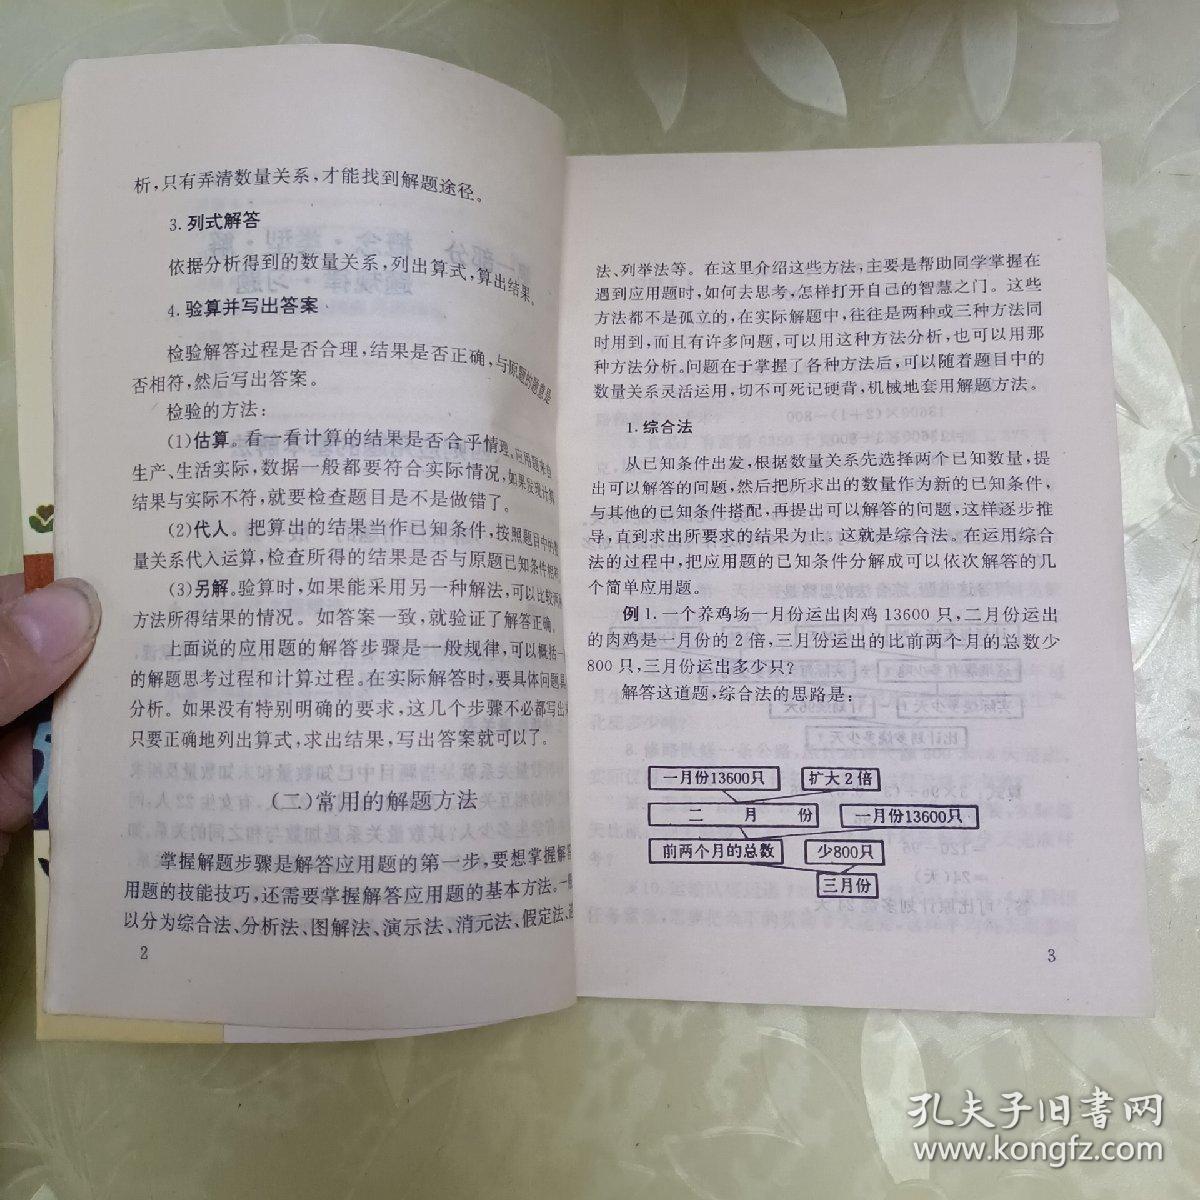 析,只有弄清数量关系,才能找到解题途径。
3. 列式解答
依据分析得到的数量关系,列出算式,算出结果。
4. 验算并写出答案
检验解答过程是否合理,结果是否正确,与原题的题意是
否相符,然后写出答案。
检验的方法:
(1)估算。看一看计算的结果是否合乎情理。应用题来自
生产、生活实际,数据一般都要符合实际情况,如果发现计算
结果与实际不符,就要检查题目是不是做错了。
(2)代人。把算出的结果当作已知条件,按照题目中的数
量关系代入运算,检查所得的结果是否与原题已知条件相符。
(3)另解。验算时,如果能采用另一种解法,可以比较两种
方法所得结果的情况。如答案一致,就验证了解答正确。
上面说的应用题的解答步骤是一般规律,可以概括一
的解题思考过程和计算过程。在实际解答时,要具体问题具
分析。如果没有特别明确的要求,这几个步骤不必都写出
只要正确地列出算式,求出结果,写出答案就可以了。
(二)常用的解题方法
掌握解题步骤是解答应用题的第一步,要想掌握解
用题的技能技巧,还需要掌握解答应用题的基本方法。一
以分为综合法、分析法、图解法、演示法、消元法、假定法、
2
法、列举法等。在这里介绍这些方法,主要是帮助同学掌握在
遇到应用题时,如何去思考,怎样打开自己的智慧之门。这些
方法都不是孤立的,在实际解题中,往往是两种或三种方法同
时用到,而且有许多问题,可以用这种方法分析,也可以用那
种方法分析。问题在于掌握了各种方法后,可以随着题目中的
数量关系灵活运用,切不可死记硬背,机械地套用解题方法。
1. 综合法
从已知条件出发,根据数量关系先选择两个已知数量,提
出可以解答的问题,然后把所求出的数量作为新的已知条件,
与其他的已知条件搭配,再提出可以解答的问题,这样逐步推
导,直到求出所要求的结果为止。这就是综合法。在运用综合
法的过程中,把应用题的已知条件分解成可以依次解答的几
个简单应用题。
例1. 一个养鸡场一月份运出肉鸡 13600 只,二月份运出
的肉鸡是一月份的 2 倍,三月份运出的比前两个月的总数少
800 只,三月份运出多少只?
解答这道题,综合法的思路是:
一月份13600只 扩大2倍
二 月 份 一月份13600只
前两个月的总数 少800只
三月份
3
孔夫子旧书网
www.kongfz.com